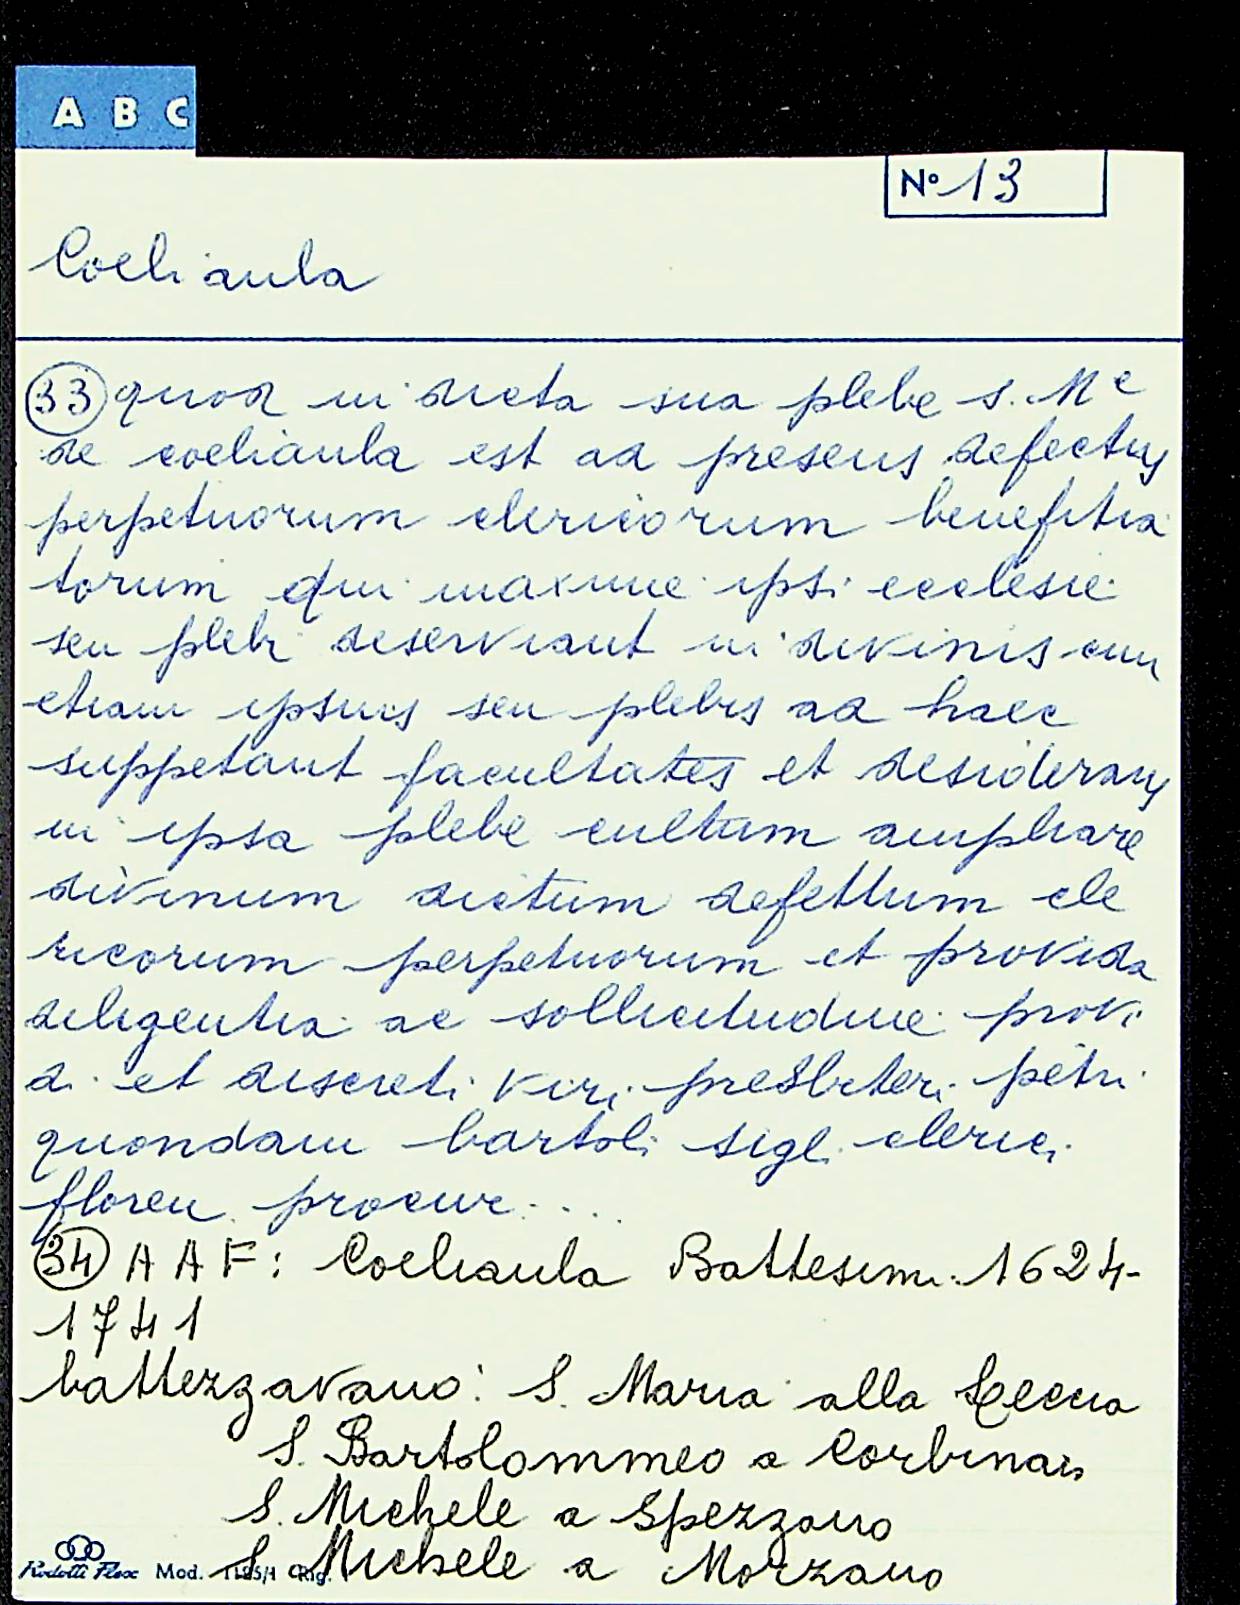 A B C
Nº 13
Coeliaula
33 quod in dicta sua plebe s. Me
de coeliaula est ad presens defectus
perpetuorum clericorum benefitia
torum qui maxime ipsi ecclesie
seu plebi deserviant in divinis cum
etiam ipsius seu plebis ad haec
suppetant facultates et desiderans
in ipsa plebe cultum ampliare
divinum dictum defettum cle
ricorum perpetuorum et provida
diligentia ac sollicitudine provi
di et discreti viri presbiteri petri
quondam bartoli sigl. clerici
floren. procur....
34 A A F: Coeliaula Battesimi 1624-
1741
battezzavano: S. Maria alla Leccia
S. Bartolommeo a Corbinais
S. Michele a Spezzano
S. Michele a Morzano
Rodolli Flex Mod. 1185/1 Orig.